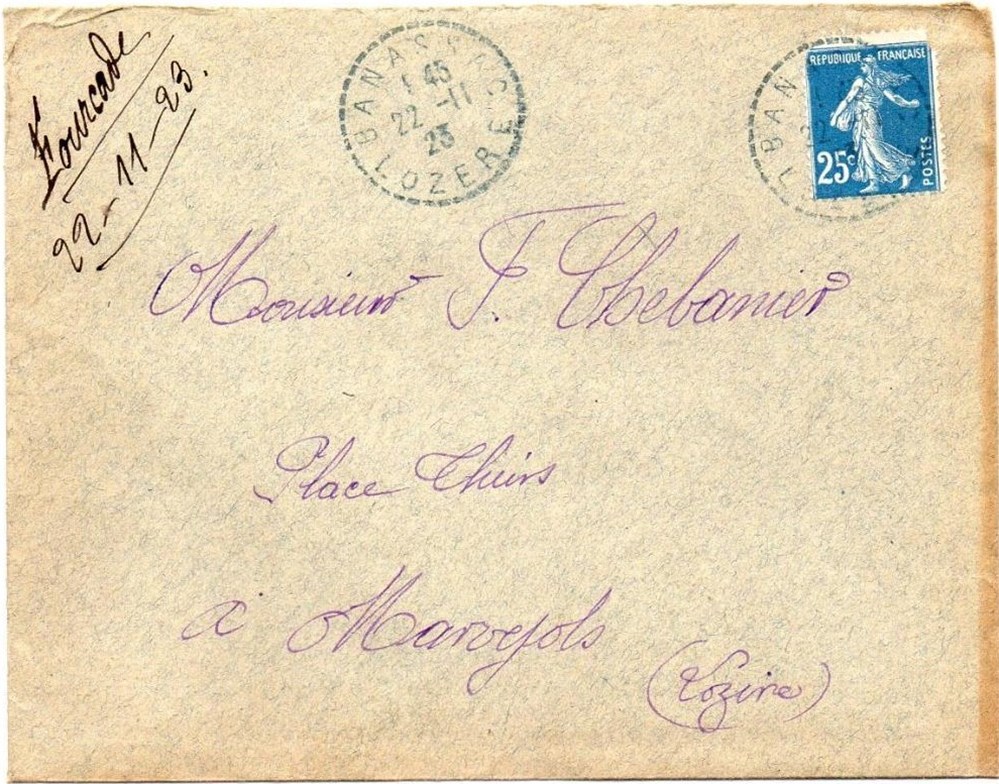 Fourcade
22-11-23.
BANASSAC
1 45
22 -11
23
LOZERE
BAN
22
L
REPUBLIQUE FRANÇAISE
25c
POSTES
Monsieur F. Chebanier
Place Thiers
à Marvejols
(Lozère)